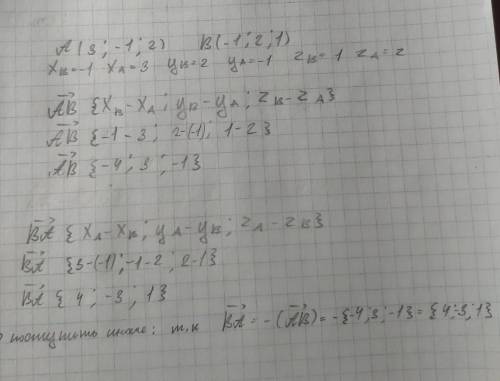 A(3; -1; 2) B(-1; 2; 1)
xв=-1 xA=3 yв=2 yA=-1 zв=1 zA=2
AB {xв-xA; yв-yA; zв-zA}
AB {-1-3; 2-(-1); 1-2}
AB {-4; 3; -1}
BA {xA-xв; yA-yв; zA-zв}
BA {3-(-1); -1-2; 2-1}
BA {4; -3; 1}
иначе: т.к BA = -(AB) = -{-4; 3; -1} = {4; -3; 1}